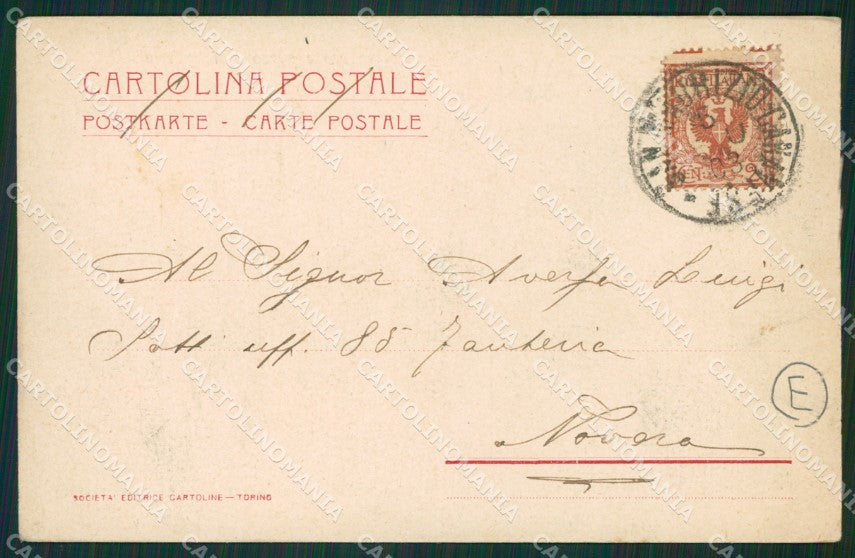 CARTOLINA POSTALE
POSTKARTE - CARTE POSTALE
Al Signor Aversa Luigi
Sott uff. 85 Fanteria
Novara
E
SOCIETA' EDITRICE CARTOLINE — TORINO
CARTOLINOMANIA